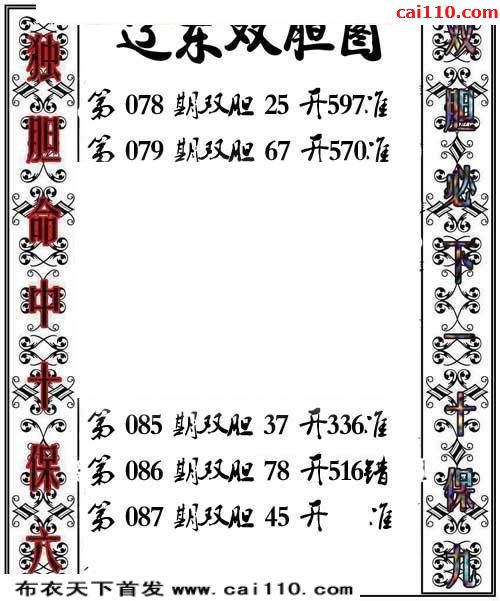 彩吧
cai110.com
辽东双胆图
独胆命中十保六
双胆必下一十保九
第 078 期双胆 25 开597准
第 079 期双胆 67 开570准
第 085 期双胆 37 开336准
第 086 期双胆 78 开516错
第 087 期双胆 45 开 准
布衣天下首发 www.cai110.com